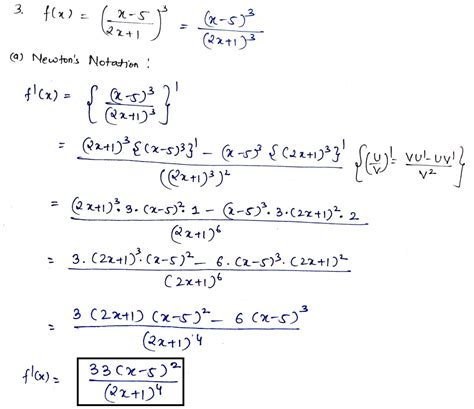 3. f(x) = ((x-5)/(2x+1))^3 = (x-5)^3/(2x+1)^3
(a) Newton's Notation :
f'(x) = { (x-5)^3/(2x+1)^3 }'
= ((2x+1)^3 {(x-5)^3}' - (x-5)^3 {(2x+1)^3}')/((2x+1)^3)^2 {(U/V)' = (VU'-UV')/V^2}
= ((2x+1)^3 · 3 · (x-5)^2 · 1 - (x-5)^3 · 3 · (2x+1)^2 · 2)/(2x+1)^6
= (3 · (2x+1)^3 · (x-5)^2 - 6 · (x-5)^3 · (2x+1)^2)/(2x+1)^6
= (3 (2x+1) (x-5)^2 - 6 (x-5)^3)/(2x+1)^4
f'(x) = 33(x-5)^2/(2x+1)^4